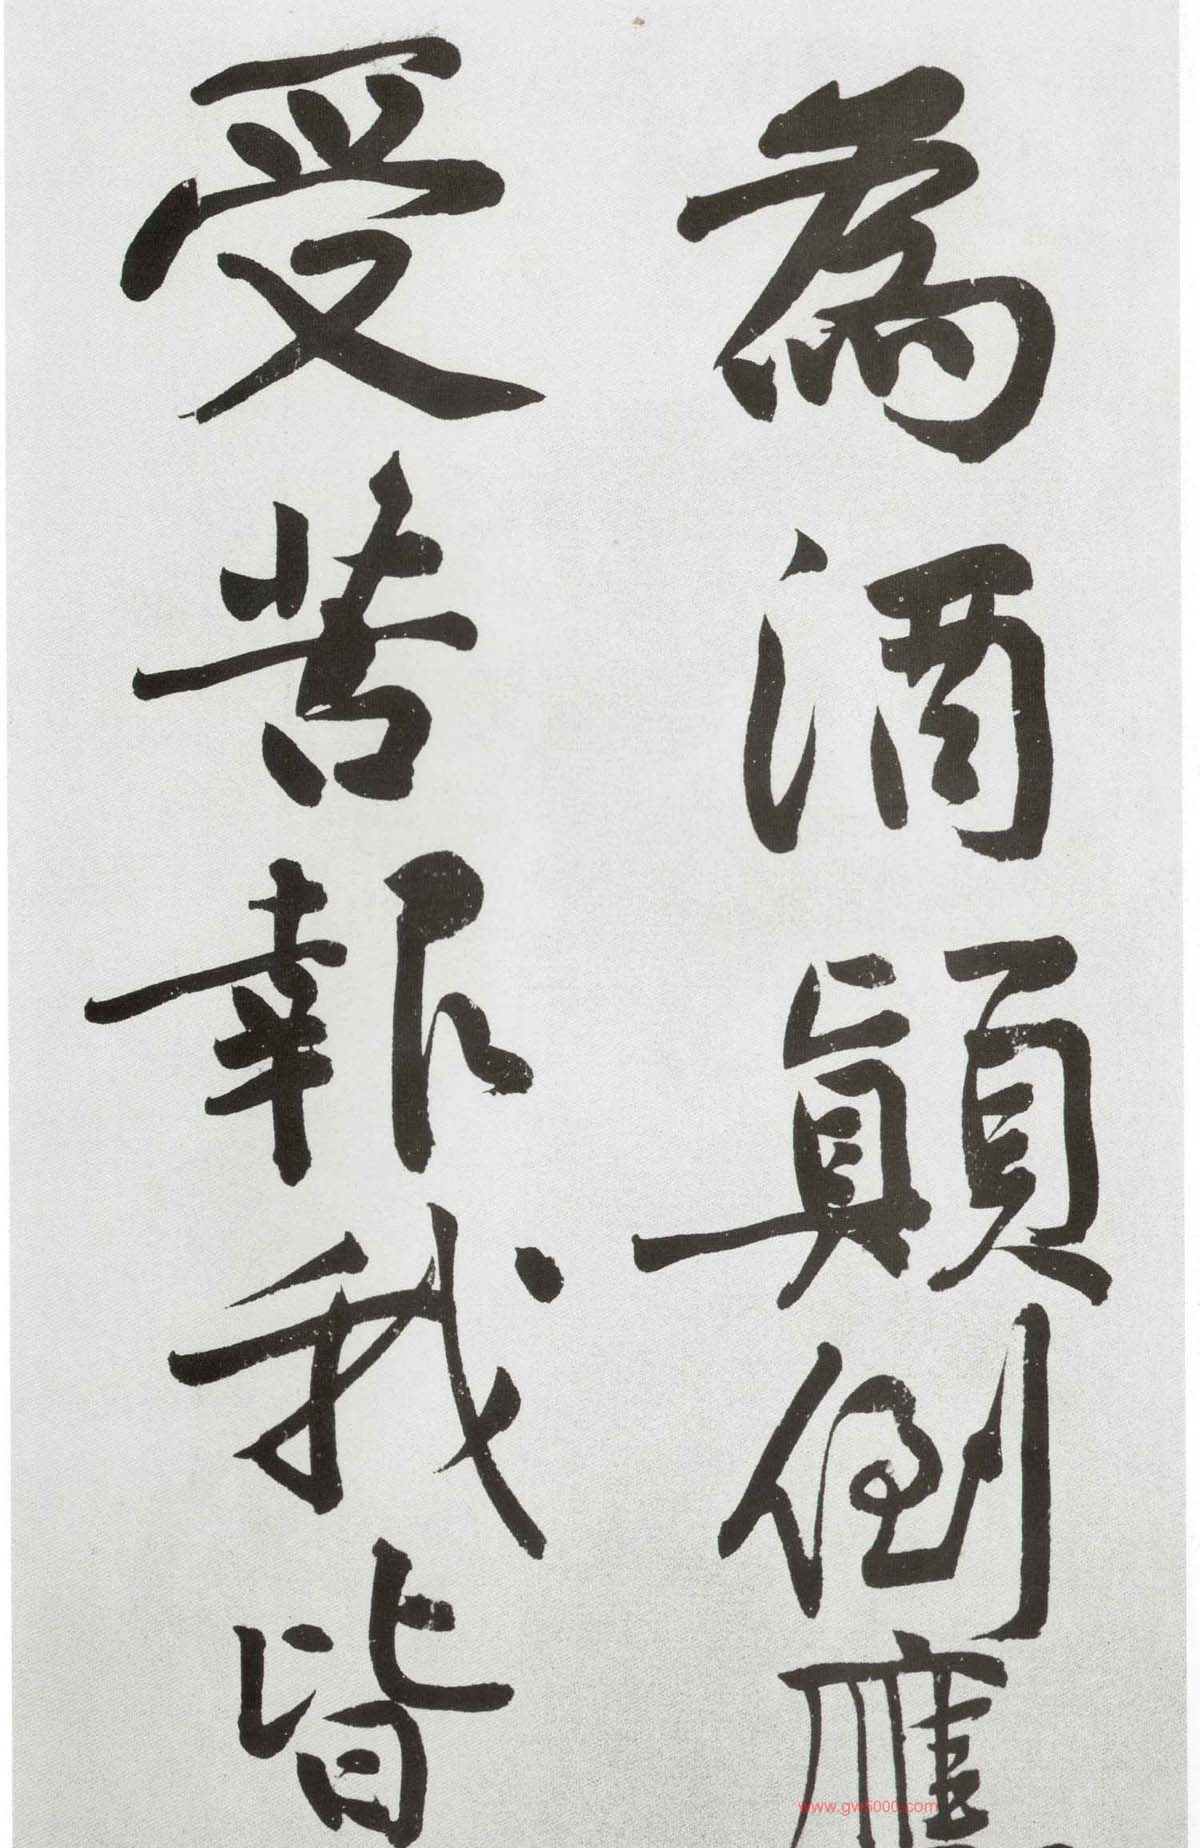 為酒顛倒應
受苦報我皆
www.gw5000.com